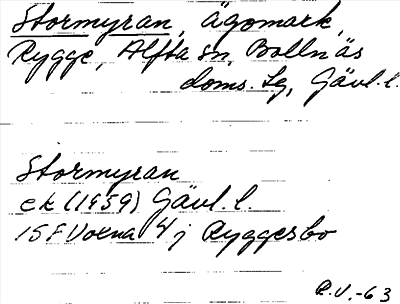 Stormyran, ägomark,
Rygge, Alfta sn, Bollnäs
doms. sg, Gävl. l.
Stormyran
ek (1959) Gävl. l.
15F Voxna 4j Ryggesbo
R.U.-63